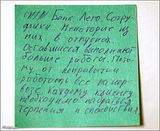 Банк Лето. Сотру-
дники некоторые из
них в отпусках.
Оставшиеся выполняют
больше работа. Пото-
му от неправильно
работать все по нер-
возе. Каждому клиенту
необходимо набраться
терпения и спокойствия